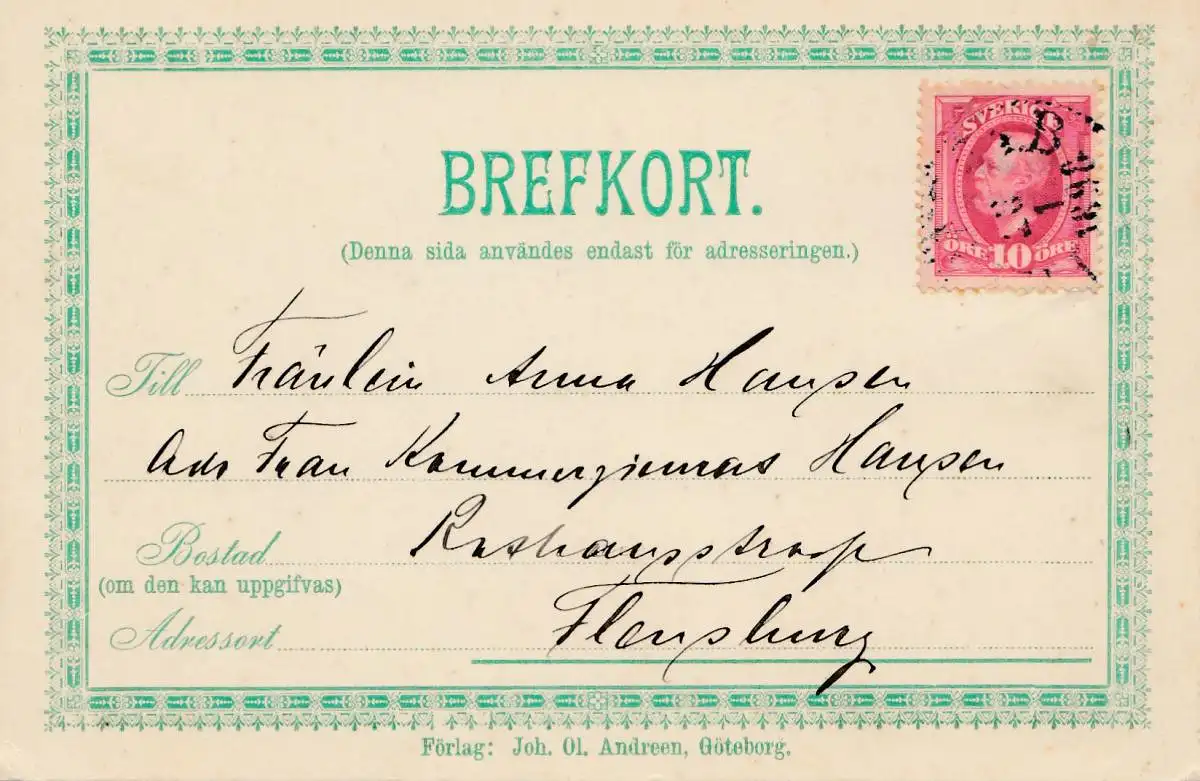 BREFKORT.
(Denna sida användes endast för adresseringen.)
SVERIGE
ÖRE 10 ÖRE
Till Fräulein Anna Hansen
Frau Kommerzienras Hansen
Bostad Rathausstrasse
(om den kan uppgifvas)
Adressort Flensburg
Förlag: Joh. Ol. Andreen, Göteborg.